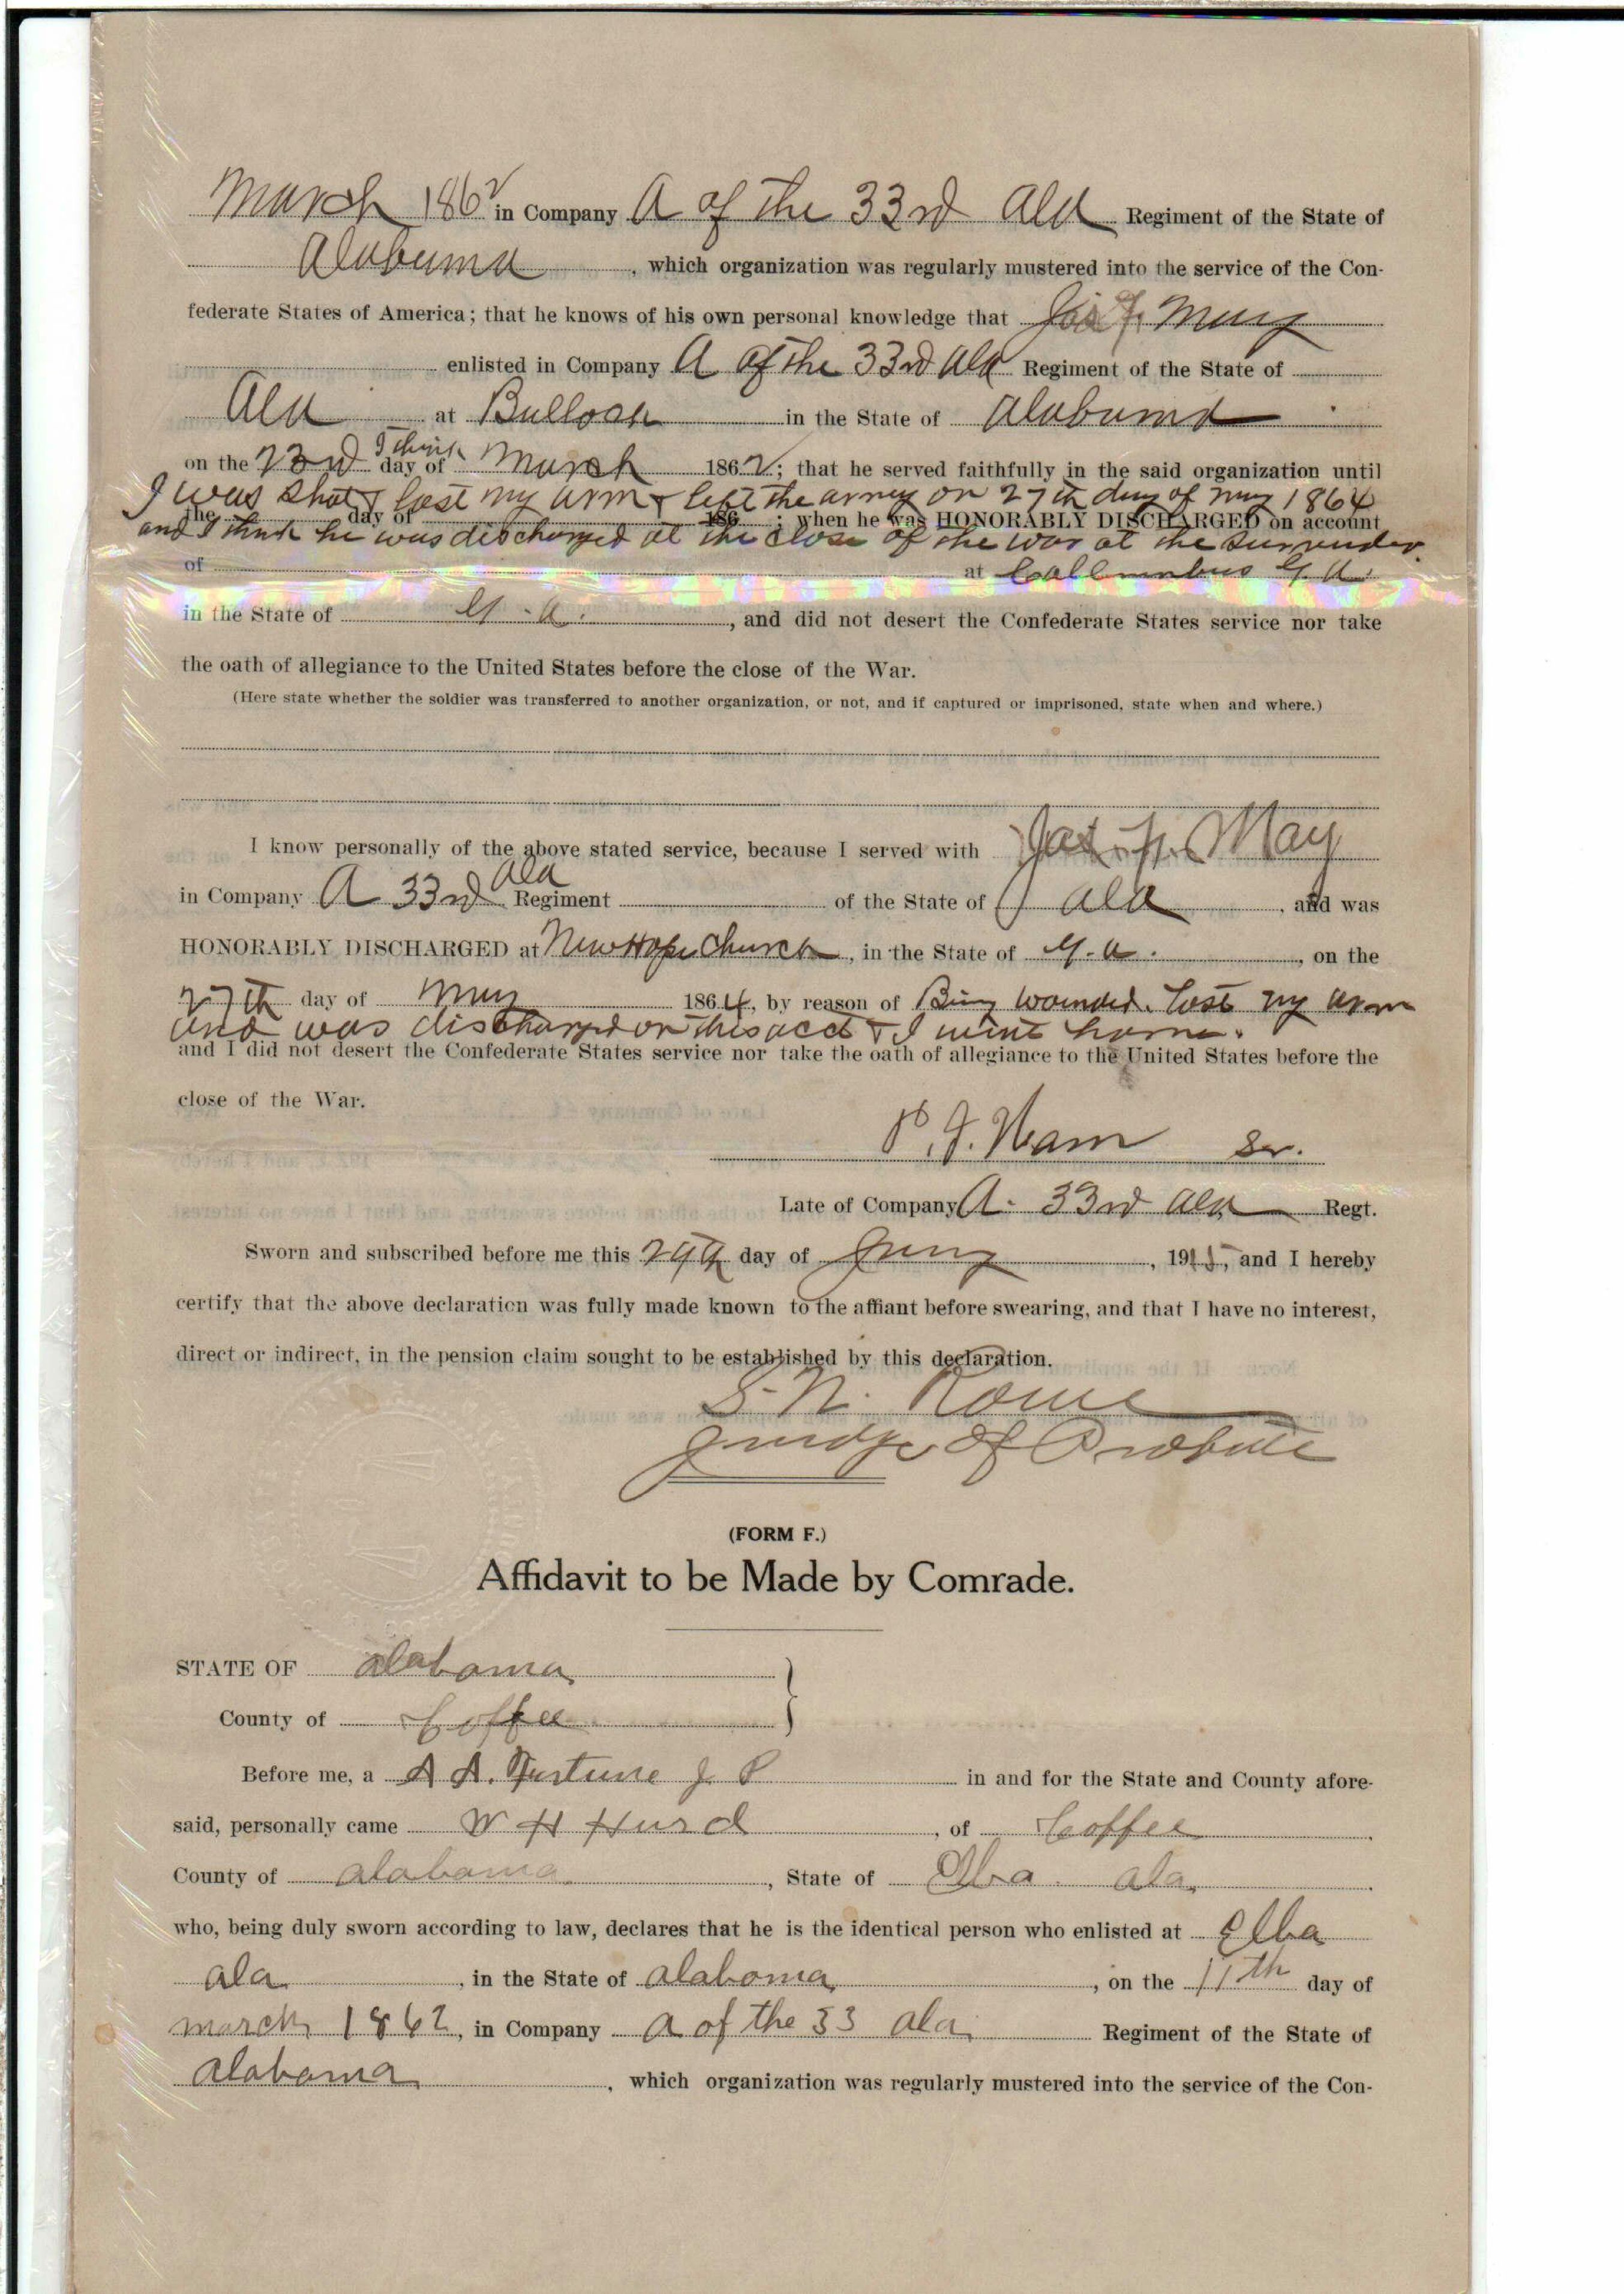 March 1862 in Company A of the 33rd Ala Regiment of the State of
Alabama, which organization was regularly mustered into the service of the Con-
federate States of America; that he knows of his own personal knowledge that Jas F. May
enlisted in Company A of the 33rd Ala Regiment of the State of
Ala at Bullock in the State of Alabama
on the 23rd I think day of March 1862; that he served faithfully in the said organization until
I was shot & lost my arm & left the army on 27th day of May 1864
the day of 186 ; when he was HONORABLY DISCHARGED on account
and I think he was discharged at the close of the war at the surrender
of at Collumbus G.A.
in the State of G.A., and did not desert the Confederate States service nor take
the oath of allegiance to the United States before the close of the War.
(Here state whether the soldier was transferred to another organization, or not, and if captured or imprisoned, state when and where.)
I know personally of the above stated service, because I served with Jas. F. May
in Company A 33rd Ala Regiment of the State of Ala, and was
HONORABLY DISCHARGED at New Hope Church, in the State of G.A., on the
27th day of May 1864, by reason of Being wounded. Lost my arm
and was discharged on this acct & I went home.
and I did not desert the Confederate States service nor take the oath of allegiance to the United States before the
close of the War.
P. J. Ham Sr.
Late of Company A. 33rd Ala Regt.
Sworn and subscribed before me this day of , 1915, and I hereby
certify that the above declaration was fully made known to the affiant before swearing, and that I have no interest,
direct or indirect, in the pension claim sought to be established by this declaration.
S. N. Rowe
Judge of Probate
(FORM F.)
Affidavit to be Made by Comrade.
STATE OF Alabama
County of Coffee
Before me, a A A. Fortune J. P in and for the State and County afore-
said, personally came W H Hurd, of Coffee
County of Alabama, State of Elba Ala.
who, being duly sworn according to law, declares that he is the identical person who enlisted at Elba
Ala, in the State of Alabama, on the 11th day of
march 1862, in Company A of the 33 Ala. Regiment of the State of
Alabama, which organization was regularly mustered into the service of the Con-